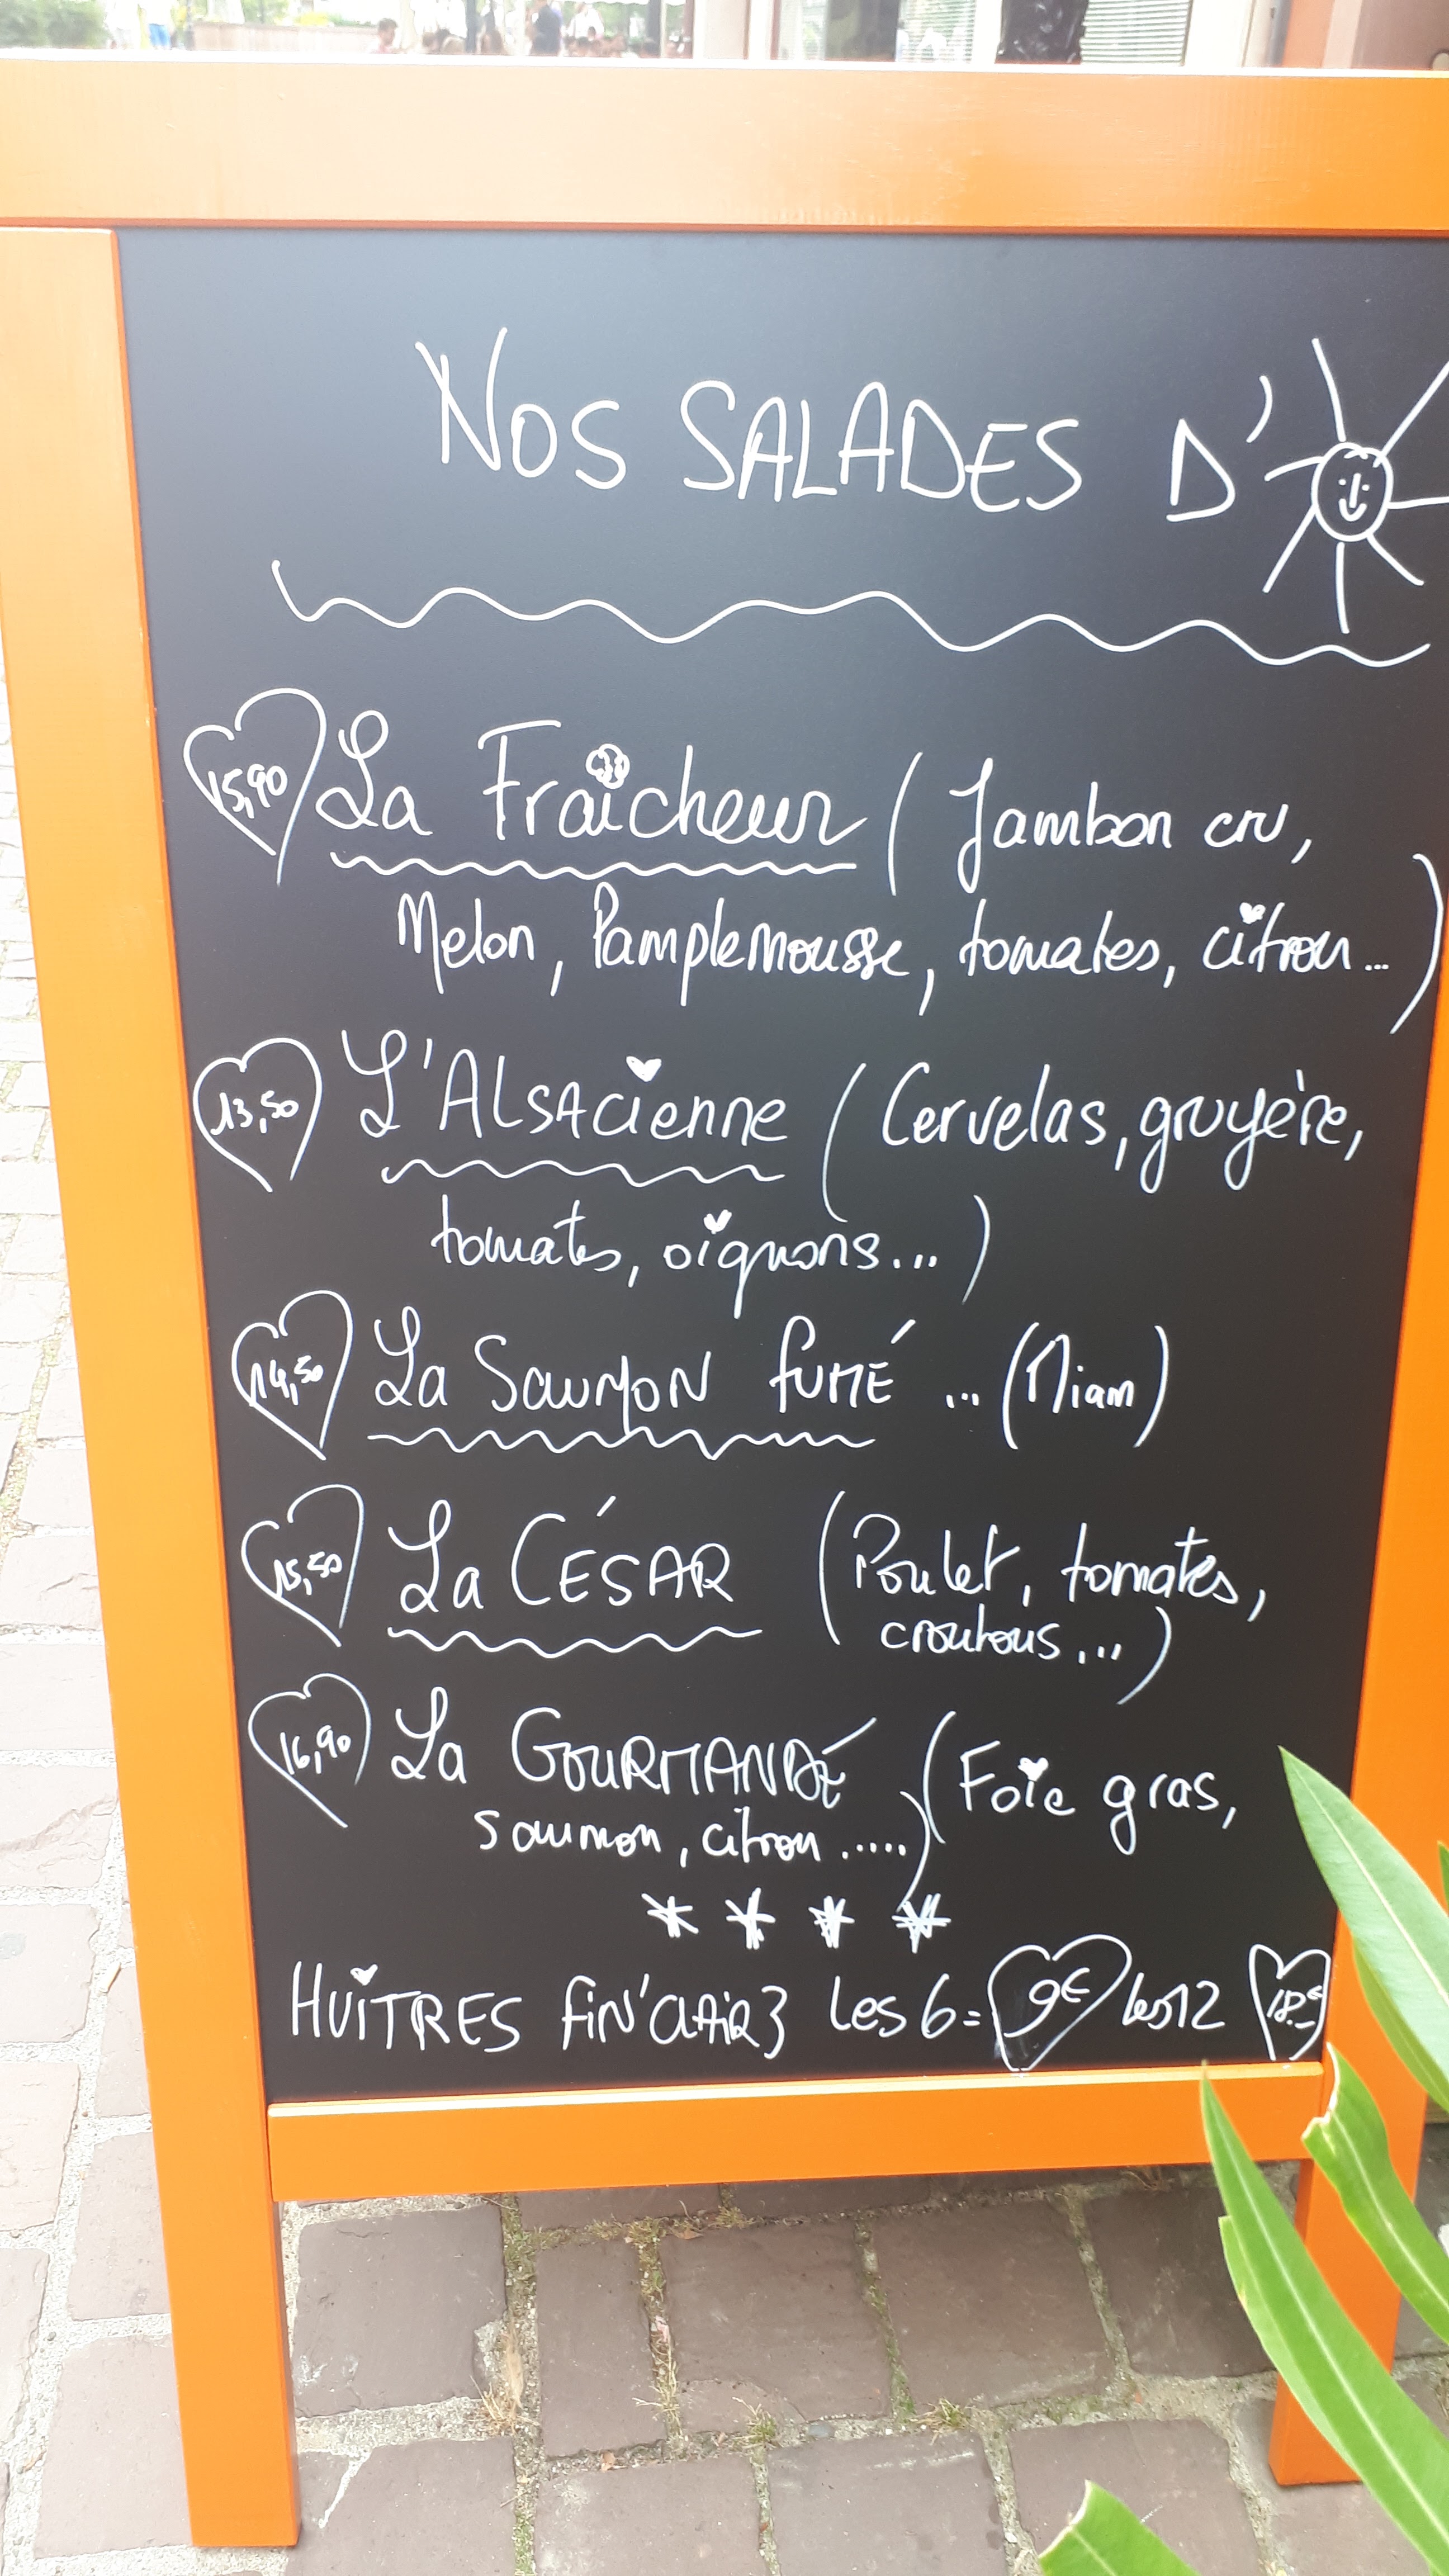 NOS SALADES D'
15,90 La Fraîcheur (Jambon cru,
Melon, Pamplemousse, tomates, citron...)
13,50 L'ALSACienne (Cervelas, gruyère,
tomates, oignons...)
14,50 La SAUMON fUMÉ ... (Miam)
15,50 La CÉSAR (Poulet, tomates,
croutons...)
16,90 La GOURMANDÉ (Foie gras,
saumon, citron.....)
* * * *
HUITRES FiN'CLAiR3 Les 6 = 9€ les 12 18.-€